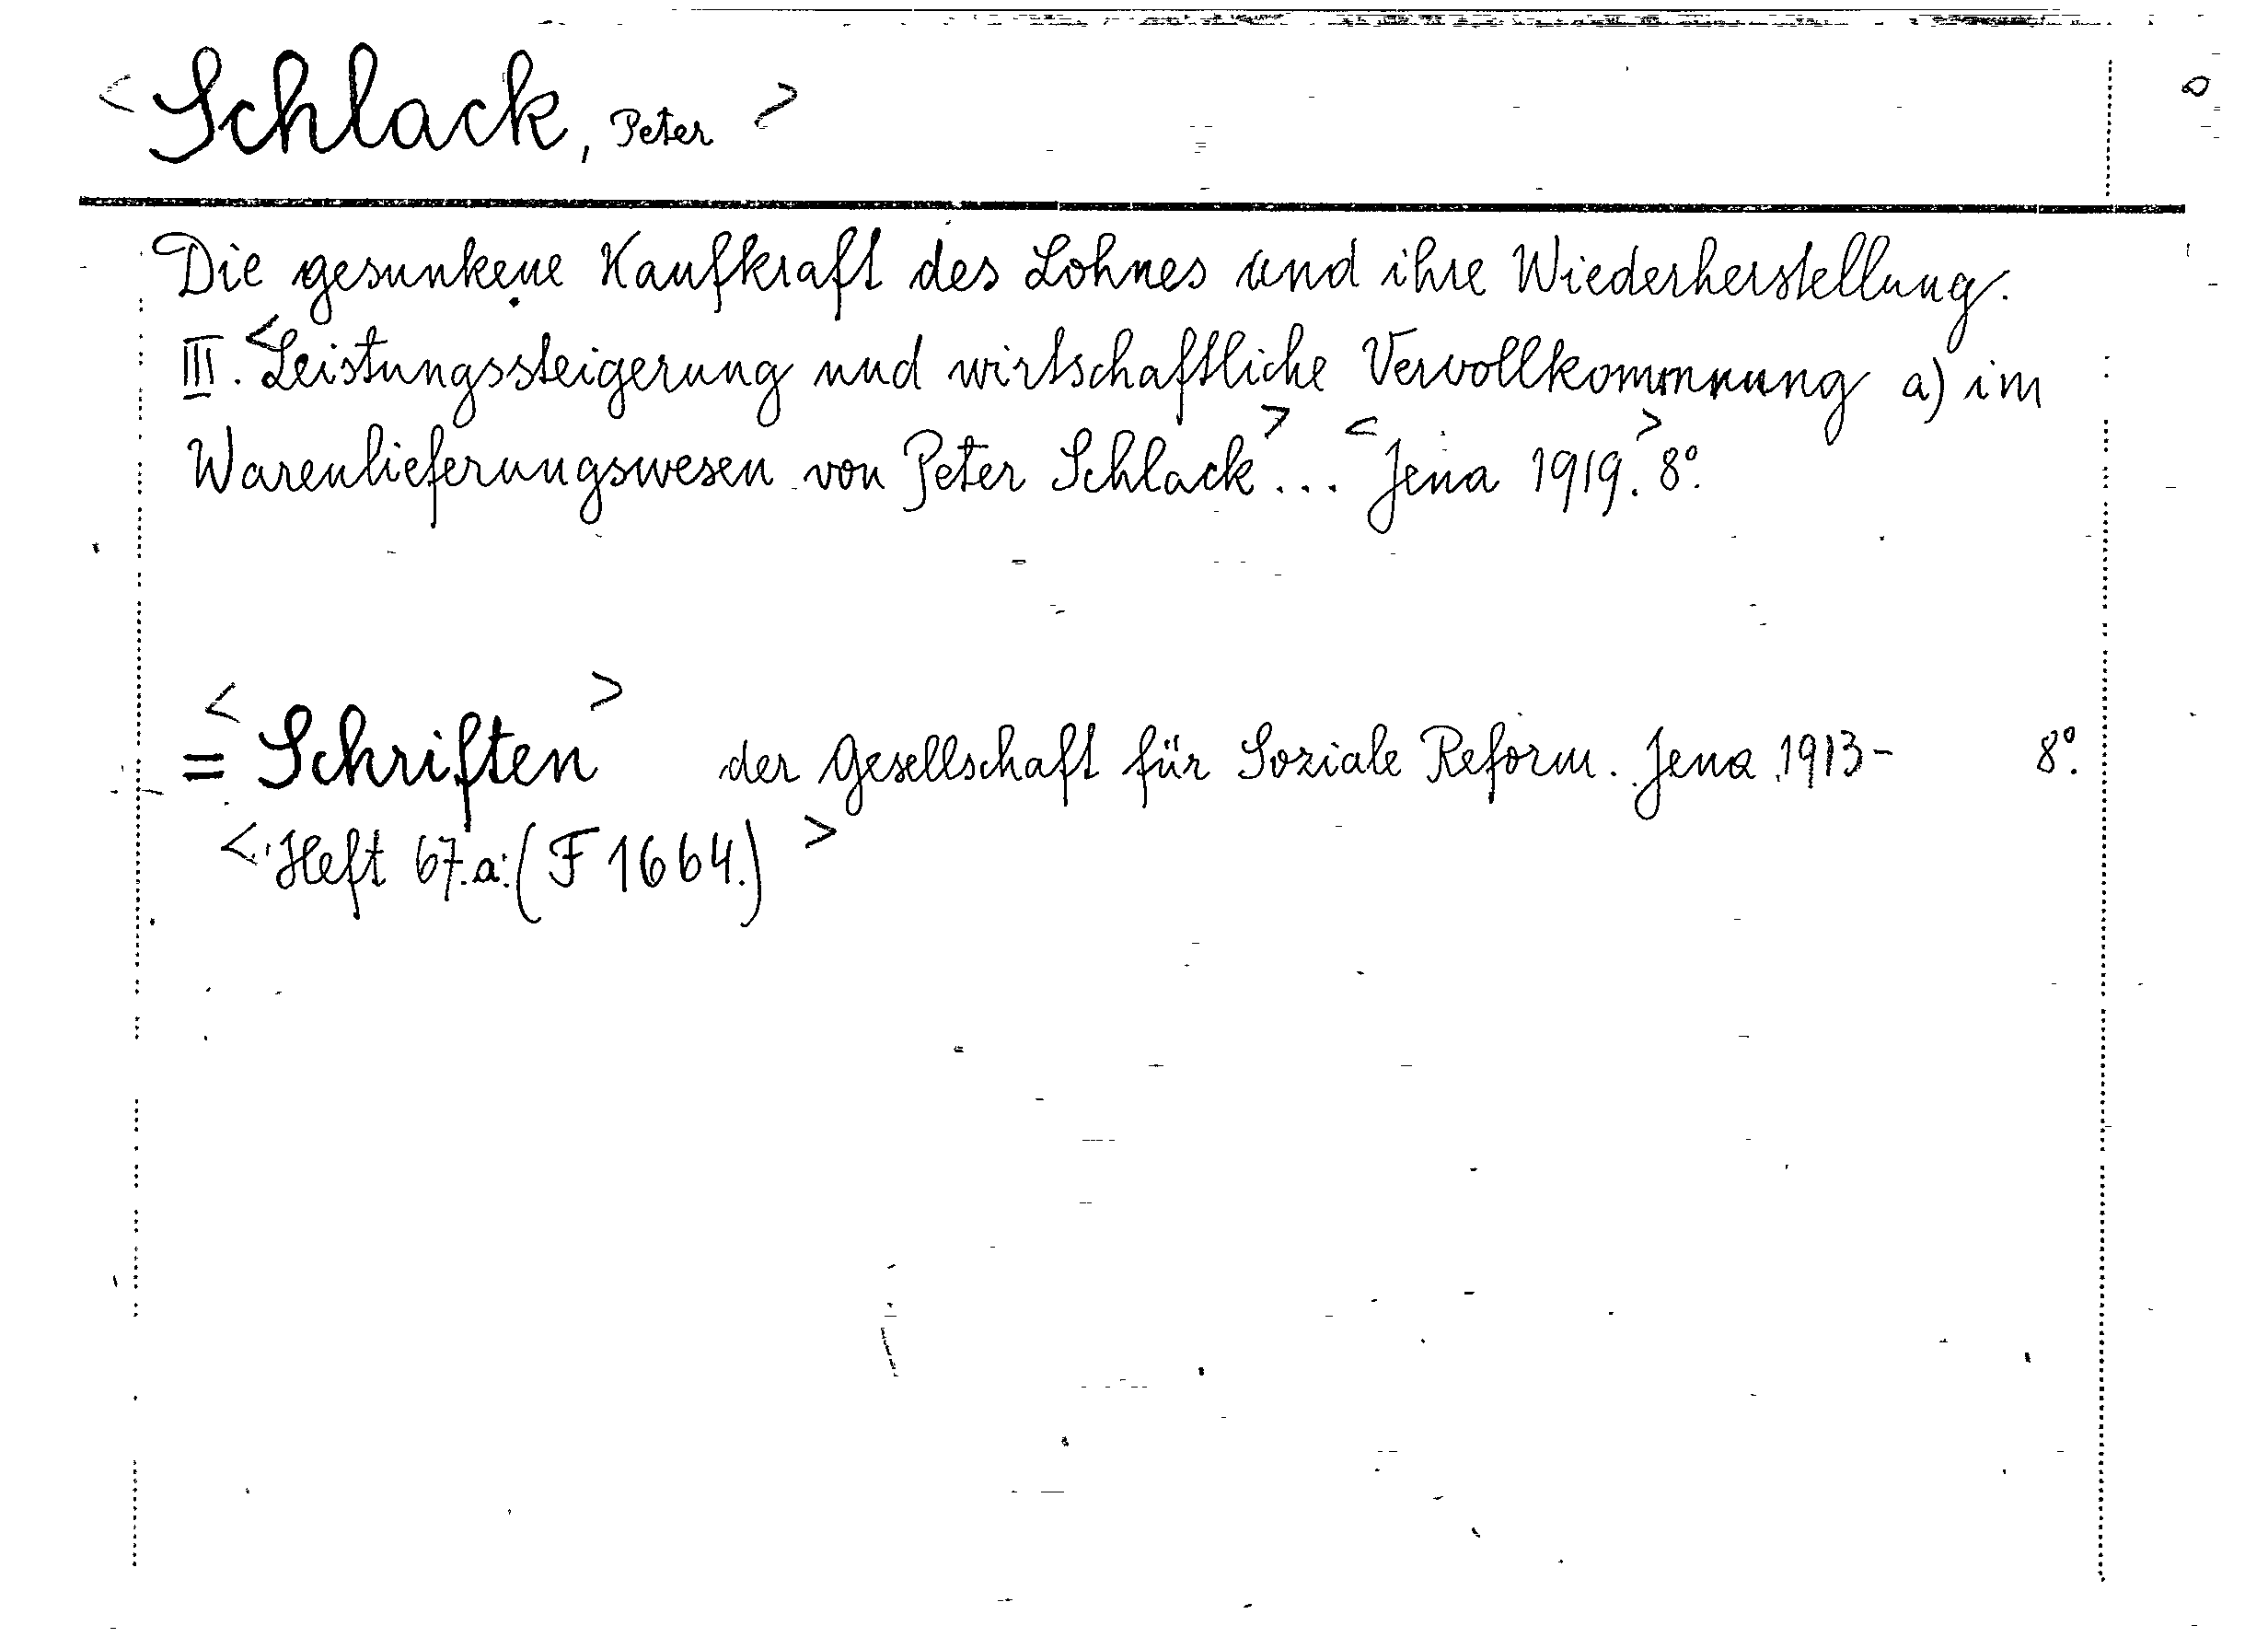 < Schlack, Peter >
Die gesunkene Kaufkraft des Lohnes und ihre Wiederherstellung.
III. <Leistungssteigerung und wirtschaftliche Vervollkommnung a) im
Warenlieferungswesen von Peter Schlack> ... <Jena 1919.> 8°.
= <Schriften> der Gesellschaft für Soziale Reform. Jena 1913- 8°.
<Heft 67.a.(F 1664.)>